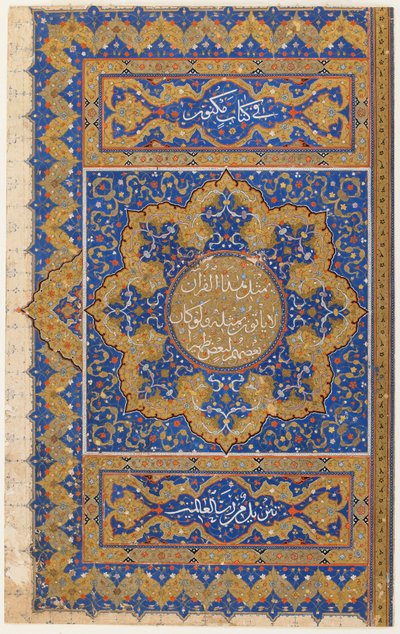 في كتاب مكنون
مثل هذا القران
لا ياتون بمثله ولو كان
بعضهم لبعض ظهيرا
تنزيل من رب العالمين